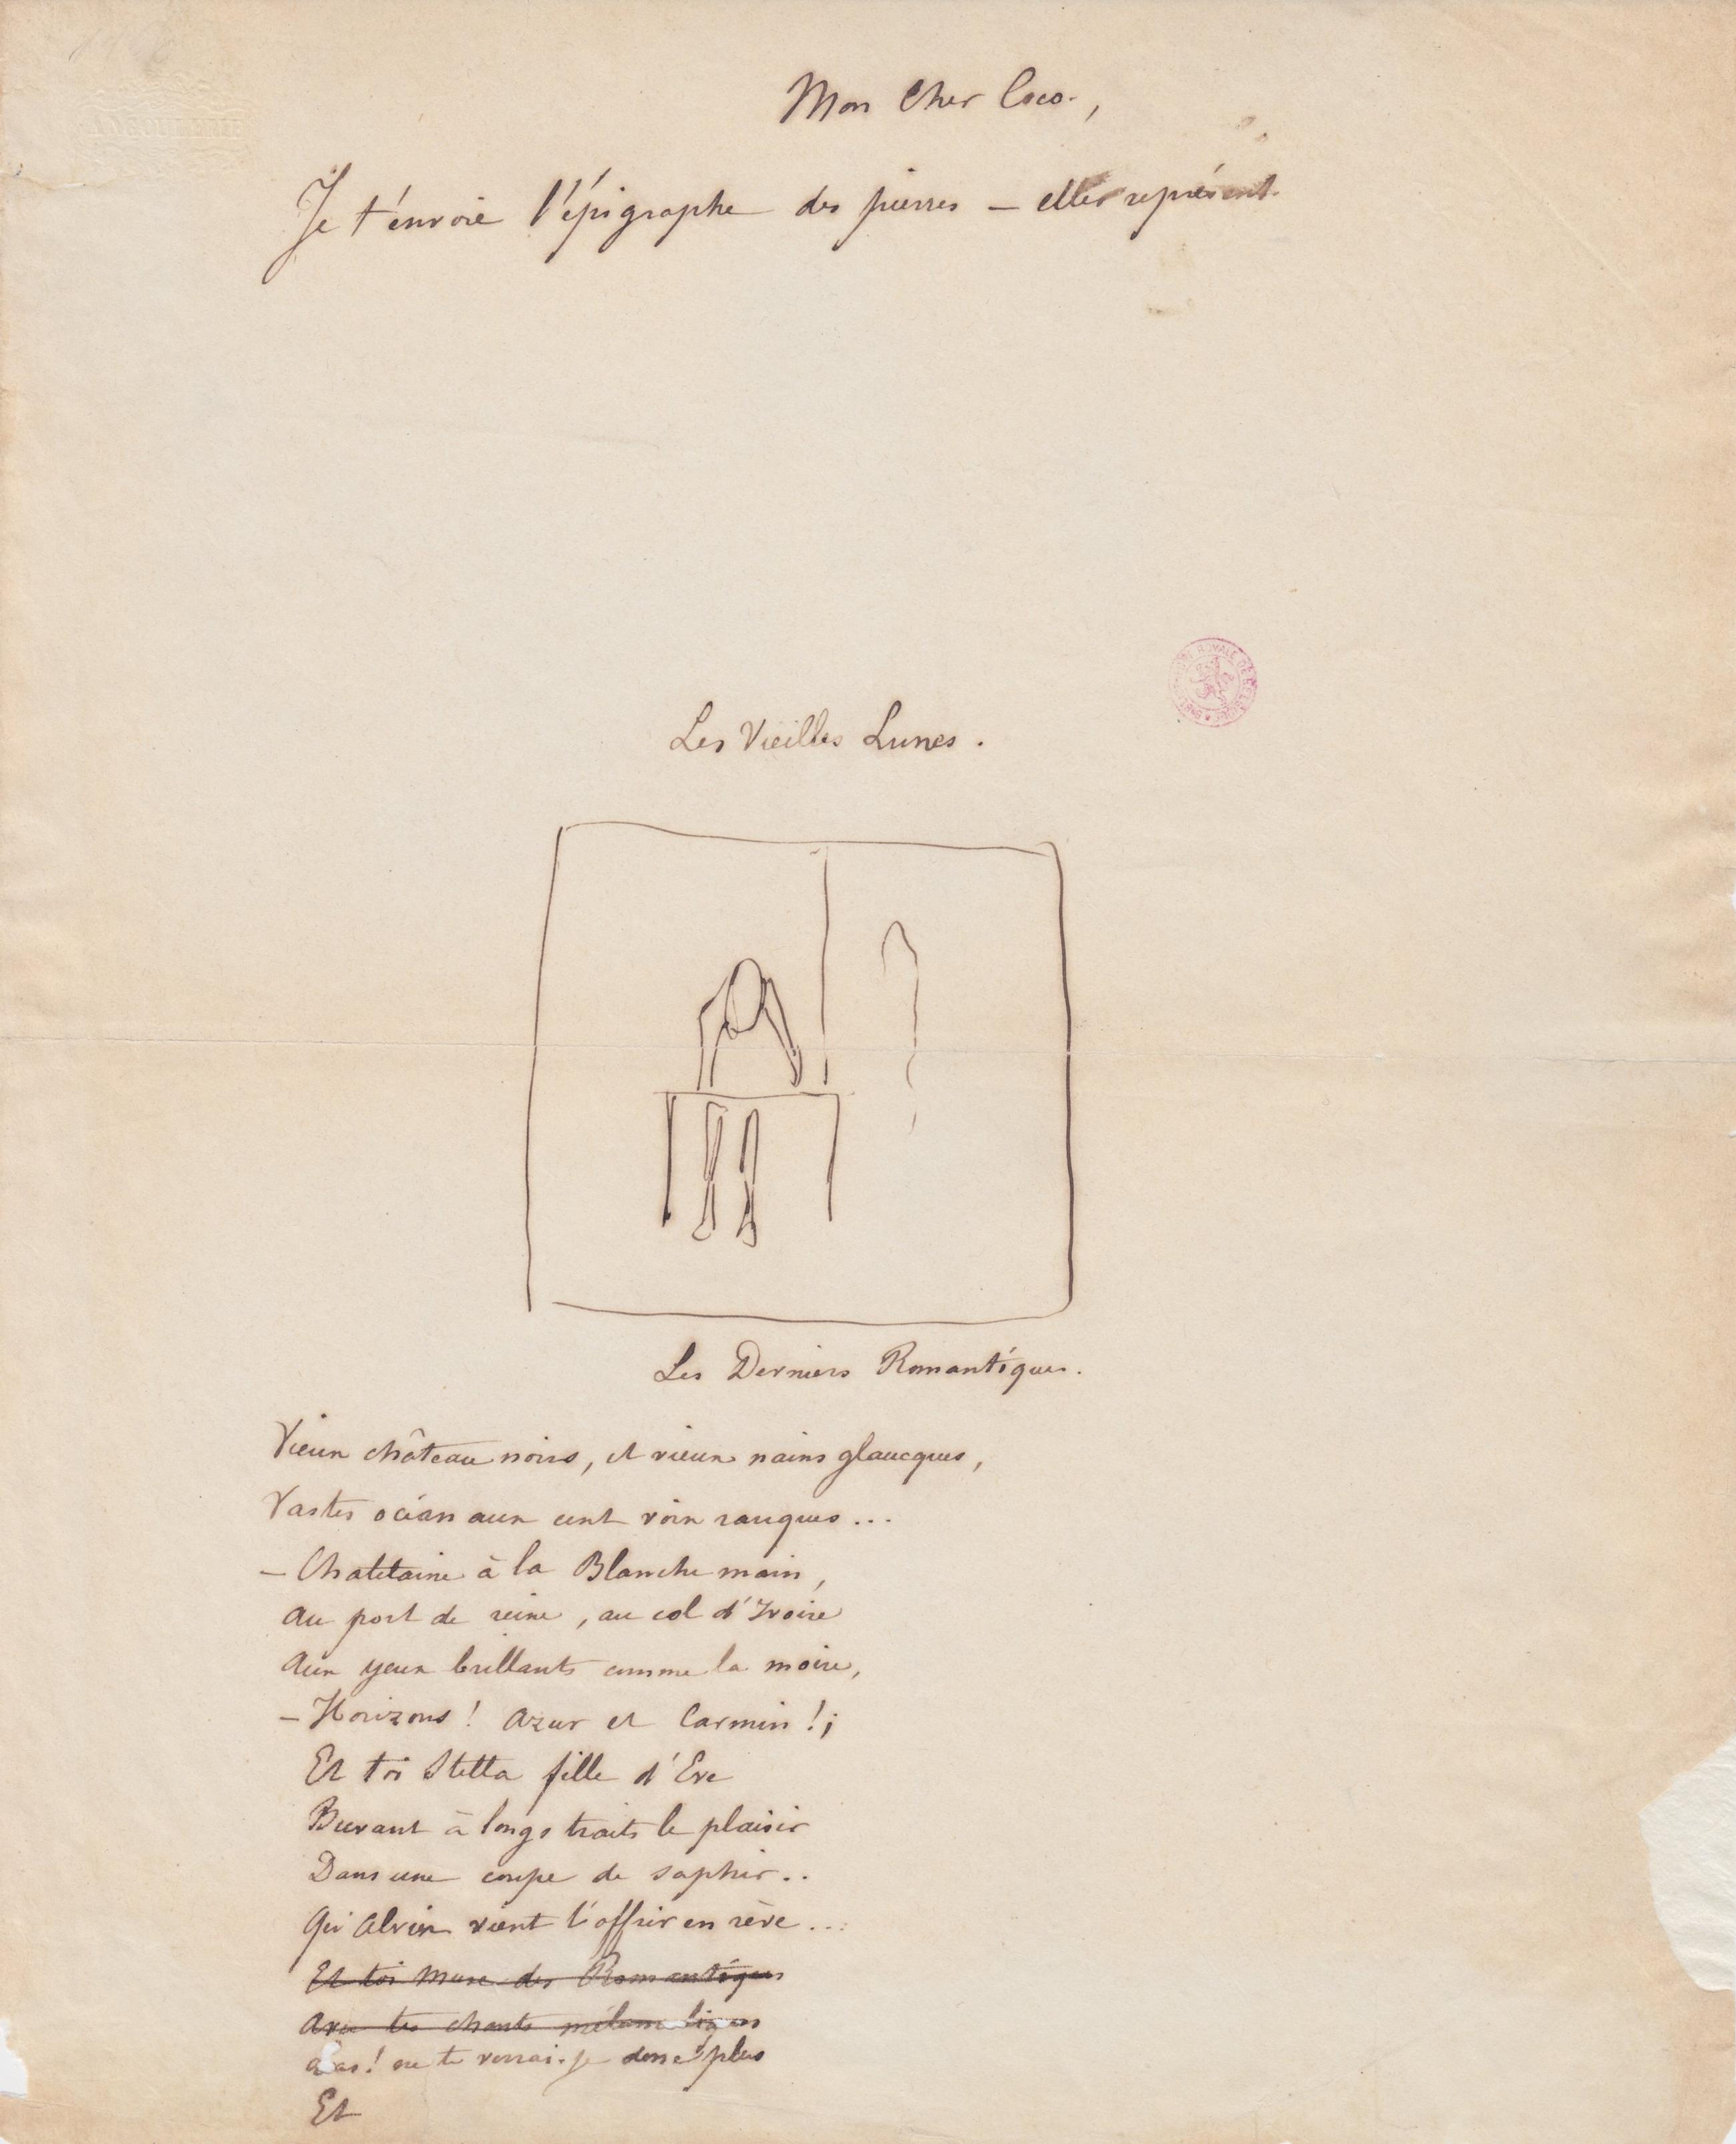 Mon Cher Coco.,
Je t'envoie l'épigraphe des pierres — elles représent.
Les Vieilles Lunes.
Les Derniers Romantiques.
Vieux château noirs, et vieux nains glaucques,
Vastes océan aux cent voix rauques...
— Chatelaine à la Blanche main,
Au port de reine, au col d'Ivoire
Aux yeux brillants comme la moire,
— Horizons! Azur et Carmin!;
Et toi Stella fille d'Eve
Buvant à longs traits le plaisir
Dans une coupe de saphir..
Qu'Alvin vient t'offrir en rêve...
Et toi Muse des Romantiques
Avec tes chants mélancoliques
ne te verrai-je donc plus
Et